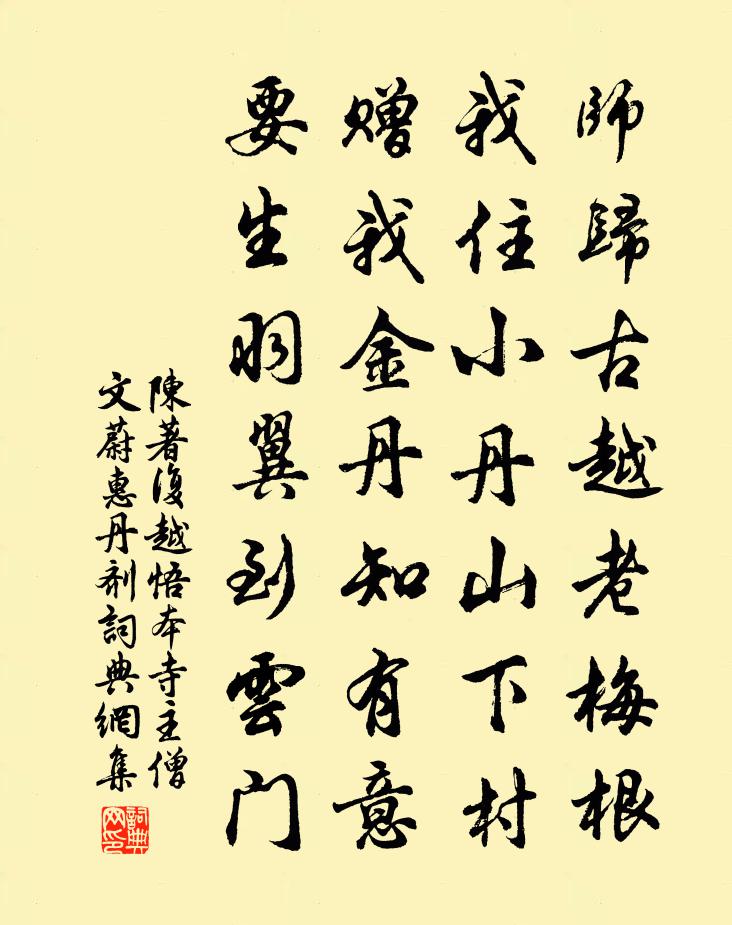 師歸古越老梅根
我住小丹山下村
贈我金丹知有意
要生羽翼到雲门
陳著復越悟本寺主僧
文蔚惠丹劑詞典網集
詞典
网印